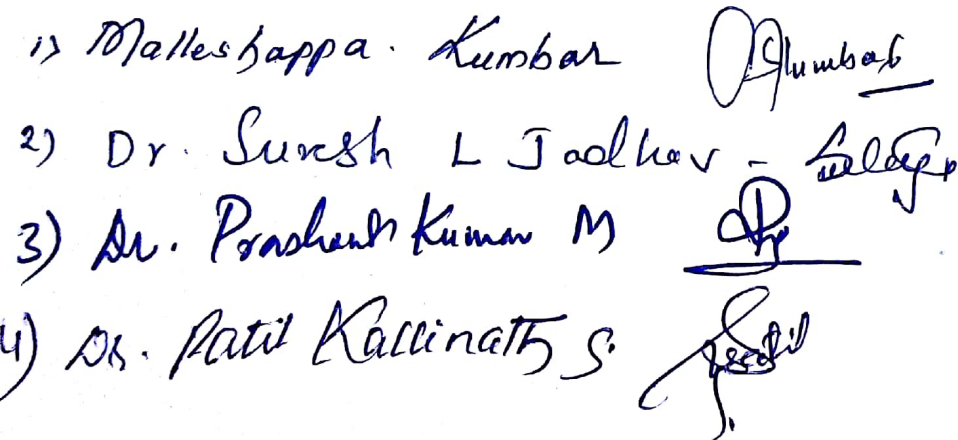 1) Malleshappa. Kumbar
2) Dr. Suresh L Jadhav -
3) Dr. Prashanth Kumar M
4) Dr. Patil Kallinath S.